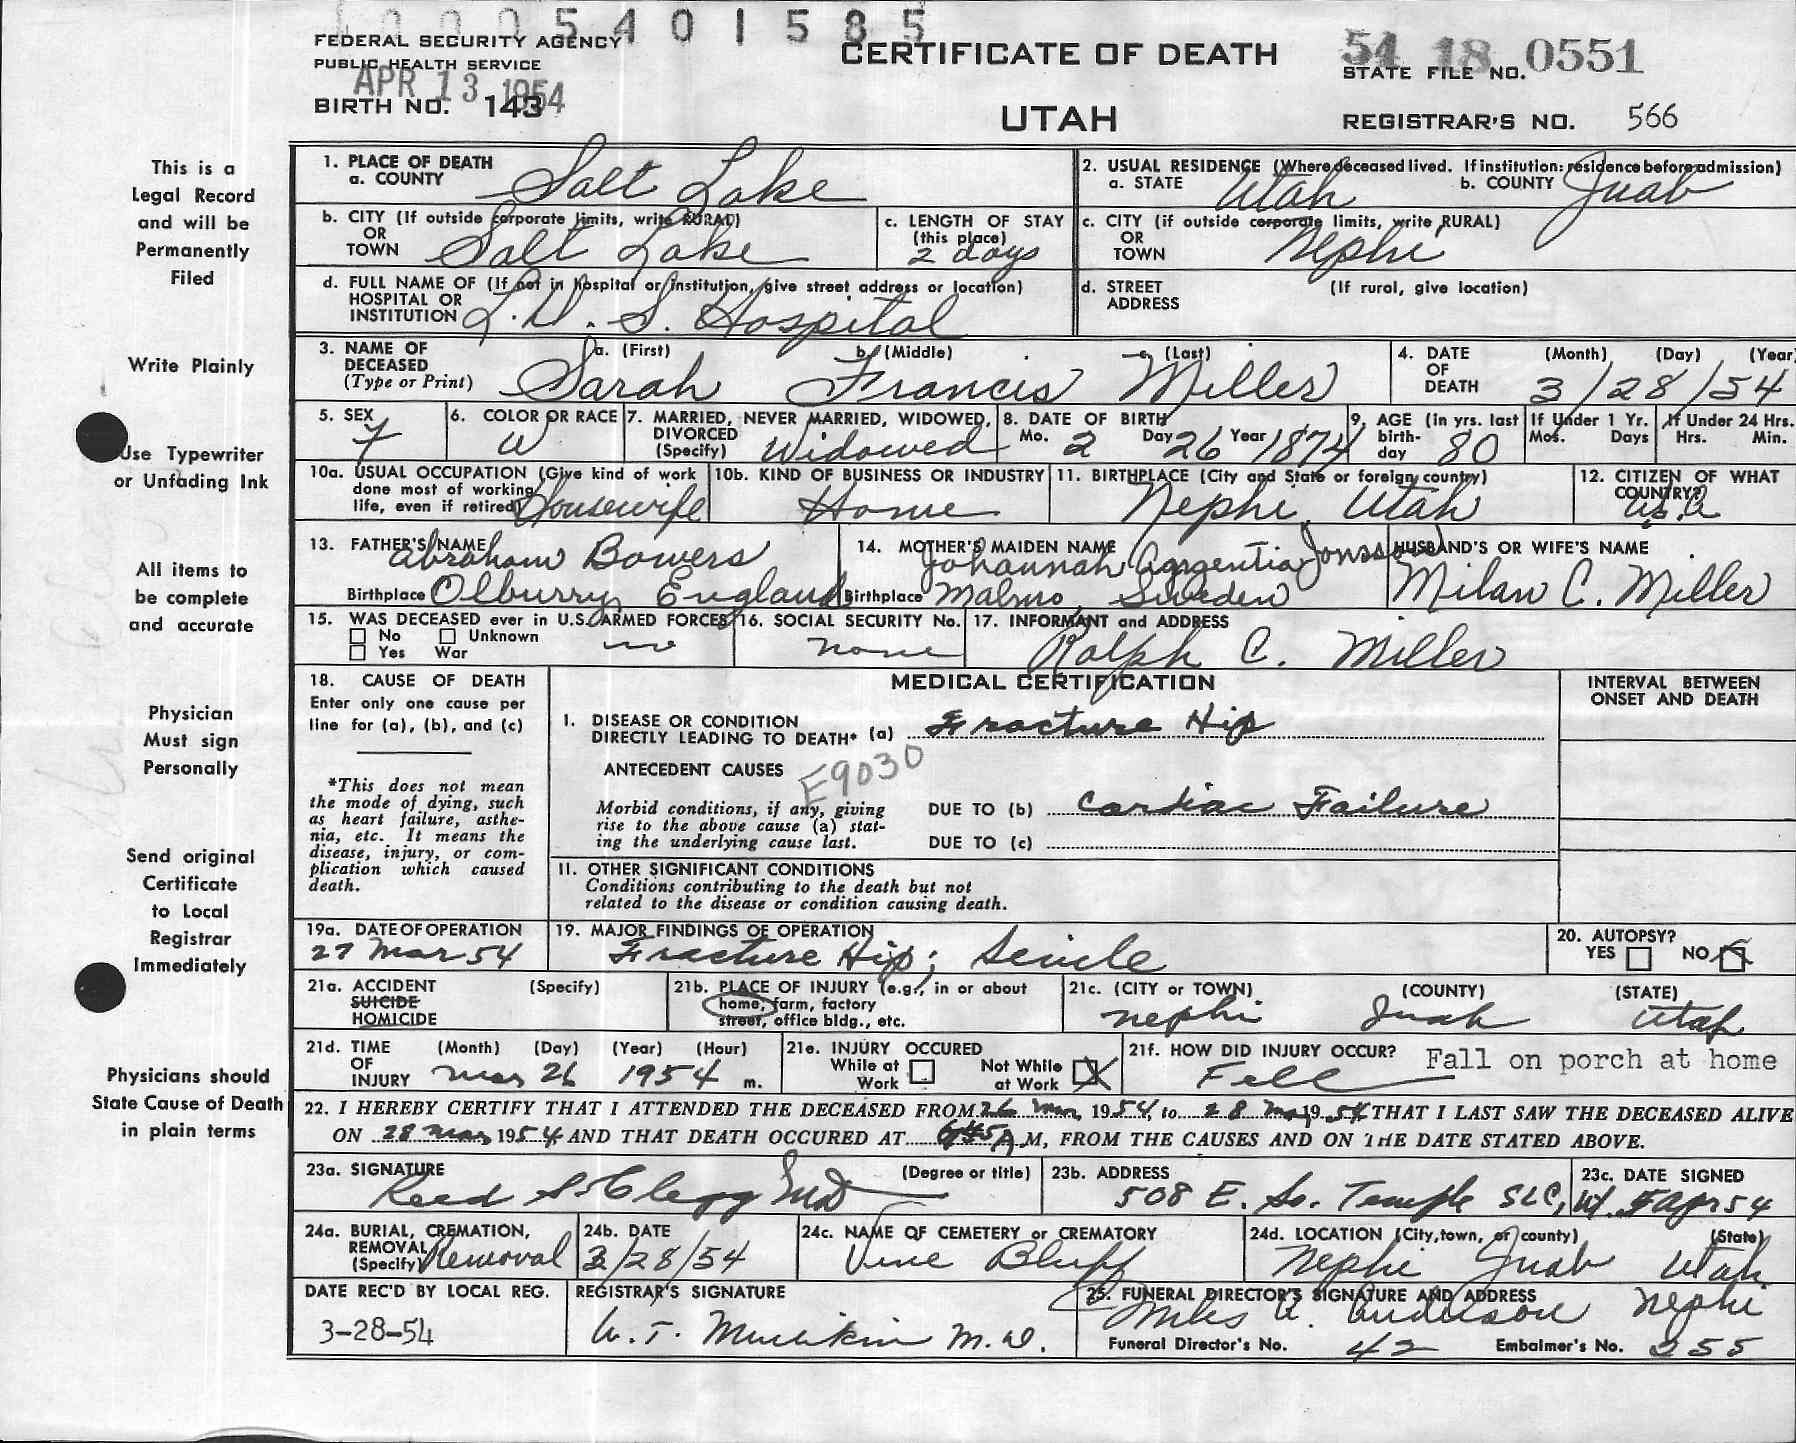 0005401585
FEDERAL SECURITY AGENCY
PUBLIC HEALTH SERVICE
APR 13 1954
BIRTH NO. 143
CERTIFICATE OF DEATH
UTAH
54 18 0551
STATE FILE NO.
REGISTRAR'S NO. 566
This is a
Legal Record
and will be
Permanently
Filed
Write Plainly
Use Typewriter
or Unfading Ink
All items to
be complete
and accurate
Physician
Must sign
Personally
Send original
Certificate
to Local
Registrar
Immediately
Physicians should
State Cause of Death
in plain terms
1. PLACE OF DEATH
a. COUNTY Salt Lake
2. USUAL RESIDENCE (Where deceased lived. If institution: residence before admission)
a. STATE Utah b. COUNTY Juab
b. CITY (If outside corporate limits, write RURAL)
OR
TOWN Salt Lake
c. LENGTH OF STAY
(this place)
2 days
c. CITY (if outside corporate limits, write RURAL)
OR
TOWN Nephi
d. FULL NAME OF (If not in hospital or institution, give street address or location)
HOSPITAL OR
INSTITUTION L.D.S. Hospital
d. STREET (If rural, give location)
ADDRESS
3. NAME OF DECEASED (Type or Print)
a. (First) b. (Middle) c. (Last)
Sarah Francis Miller
4. DATE OF DEATH (Month) (Day) (Year)
3/28/54
5. SEX F
6. COLOR OR RACE W
7. MARRIED, NEVER MARRIED, WIDOWED,
DIVORCED
(Specify) Widowed
8. DATE OF BIRTH
Mo. 2 Day 26 Year 1874
9. AGE (in yrs. last
birth-
day 80
If Under 1 Yr.
Mos. Days
If Under 24 Hrs.
Hrs. Min.
10a. USUAL OCCUPATION (Give kind of work
done most of working
life, even if retired) Housewife
10b. KIND OF BUSINESS OR INDUSTRY
Home
11. BIRTHPLACE (City and State or foreign country)
Nephi, Utah
12. CITIZEN OF WHAT
COUNTRY?
13. FATHER'S NAME
Abraham Bowers
Birthplace Olburry England
14. MOTHER'S MAIDEN NAME
Johannah Argentia Jonsson
Birthplace Malmo Sweden
HUSBAND'S OR WIFE'S NAME
Milan C. Miller
15. WAS DECEASED ever in U.S. ARMED FORCES
No Unknown
Yes War
no
16. SOCIAL SECURITY No.
none
17. INFORMANT and ADDRESS
Ralph C. Miller
18. CAUSE OF DEATH
Enter only one cause per
line for (a), (b), and (c)
*This does not mean
the mode of dying, such
as heart failure, asthe-
nia, etc. It means the
disease, injury, or com-
plication which caused
death.
MEDICAL CERTIFICATION
INTERVAL BETWEEN
ONSET AND DEATH
1. DISEASE OR CONDITION
DIRECTLY LEADING TO DEATH* (a) Fracture Hip
ANTECEDENT CAUSES
E9030
Morbid conditions, if any, giving
rise to the above cause (a) stat-
ing the underlying cause last.
DUE TO (b) Cardiac Failure
DUE TO (c)
11. OTHER SIGNIFICANT CONDITIONS
Conditions contributing to the death but not
related to the disease or condition causing death.
19a. DATE OF OPERATION
27 Mar 54
19. MAJOR FINDINGS OF OPERATION
Fracture Hip; Senile
20. AUTOPSY?
YES NO
21a. ACCIDENT (Specify)
SUICIDE
HOMICIDE
21b. PLACE OF INJURY (e.g., in or about
home, farm, factory
street, office bldg., etc.
21c. (CITY or TOWN) (COUNTY) (STATE)
Nephi Juab Utah
21d. TIME OF INJURY (Month) (Day) (Year) (Hour)
Mar 26 1954 m.
21e. INJURY OCCURED
While at Work
Not While at Work
21f. HOW DID INJURY OCCUR? Fall on porch at home
Fell
22. I HEREBY CERTIFY THAT I ATTENDED THE DECEASED FROM 26 Mar 1954, to 28 Mar 1954 THAT I LAST SAW THE DECEASED ALIVE
ON 28 Mar 1954 AND THAT DEATH OCCURED AT 645 A.M, FROM THE CAUSES AND ON THE DATE STATED ABOVE.
23a. SIGNATURE (Degree or title)
Reed S. Clegg MD
23b. ADDRESS
508 E. So. Temple SLC, Ut.
23c. DATE SIGNED
5 Apr 54
24a. BURIAL, CREMATION,
REMOVAL
(Specify) Removal
24b. DATE
3/28/54
24c. NAME OF CEMETERY or CREMATORY
Vine Bluff
24d. LOCATION (City, town, or county) (State)
Nephi Juab Utah
DATE REC'D BY LOCAL REG.
3-28-54
REGISTRAR'S SIGNATURE
25. FUNERAL DIRECTOR'S SIGNATURE AND ADDRESS
Miles A. Anderson Nephi
Funeral Director's No. 42 Embalmer's No. 255